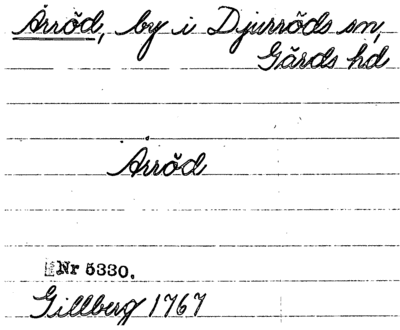 Årröd, by i Djurröds sn,
Gärds hd
Årröd
Nr 5330.
Gillberg 1767